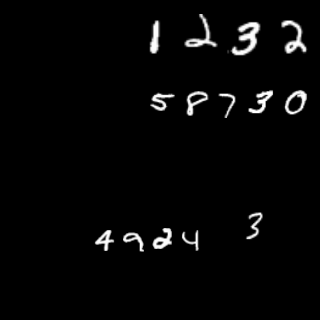 1232
58730
4924 3